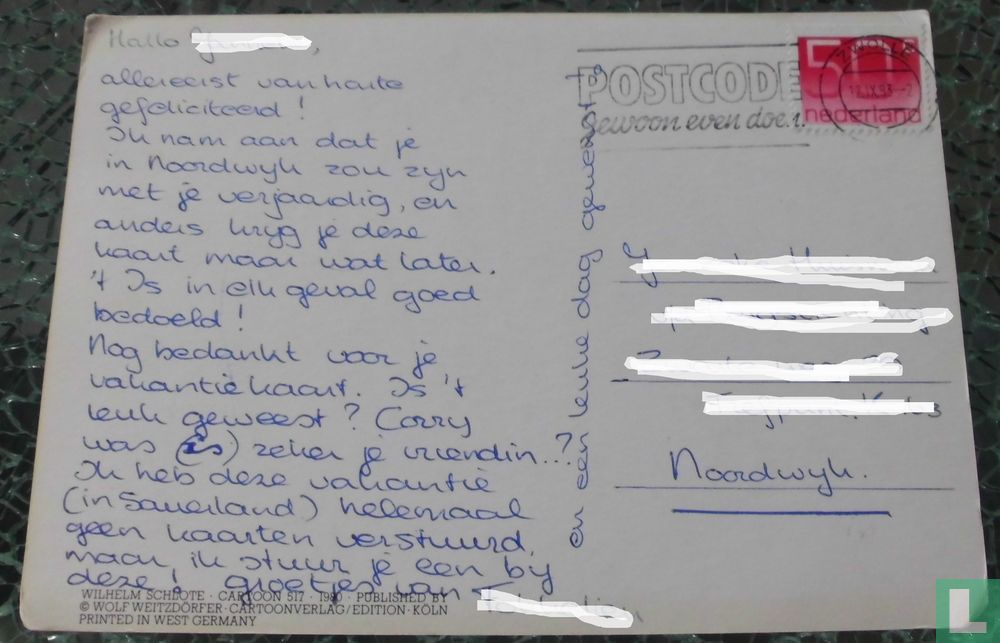 Hallo
allereerst van harte
gefeliciteerd!
Ik nam aan dat je
in Noordwijk zou zijn
met je verjaardig, en
anders krijg je deze
kaart maar wat later.
't Is in elk geval goed
bedoeld!
Nog bedankt voor je
vakantiekaart. Is 't
leuk geweest? Corry
was (is) zeker je vriendin...?
Ik heb deze vakantie
(in Sauerland) helemaal
geen kaarten verstuurd,
maar ik stuur je een bij
deze! groetjes van
en een leuke dag gewenst
WILHELM SCHLOTE · CARTOON 517 · PUBLISHED BY
© WOLF WEITZDÖRFER · CARTOONVERLAG/EDITION · KÖLN
PRINTED IN WEST GERMANY
POSTCODE
gewoon even doen
ZWOLLE
50
nederland
Noordwijk.
L